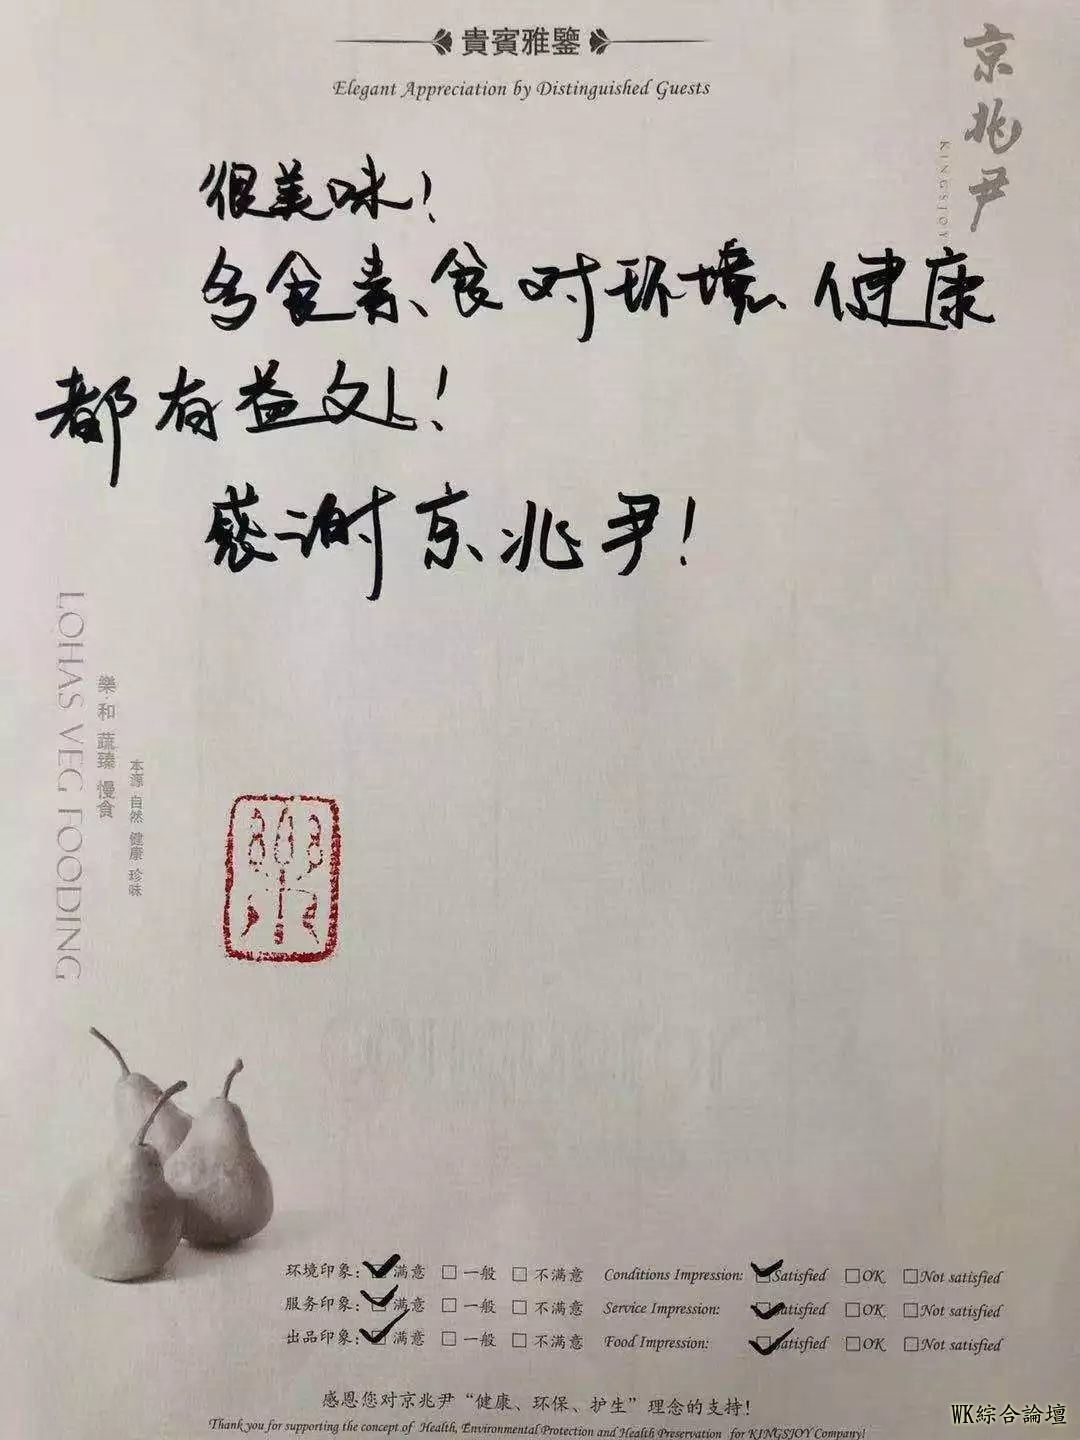 貴賓雅鑒
Elegant Appreciation by Distinguished Guests
京兆尹
KINGSJOY
很美味！
多食素、食对环境、健康
都有益处！
感谢京兆尹！
LOHAS VEG FOODING
樂·和 蔬臻 慢食
本源 自然 健康 珍味
环境印象：□满意 □一般 □不满意 Conditions Impression: □Satisfied □OK □Not satisfied
服务印象：□满意 □一般 □不满意 Service Impression: □Satisfied □OK □Not satisfied
出品印象：□满意 □一般 □不满意 Food Impression: □Satisfied □OK □Not satisfied
感恩您对京兆尹“健康、环保、护生”理念的支持！
Thank you for supporting the concept of Health, Environmental Protection and Health Preservation for KINGSJOY Company!
WK綜合論壇